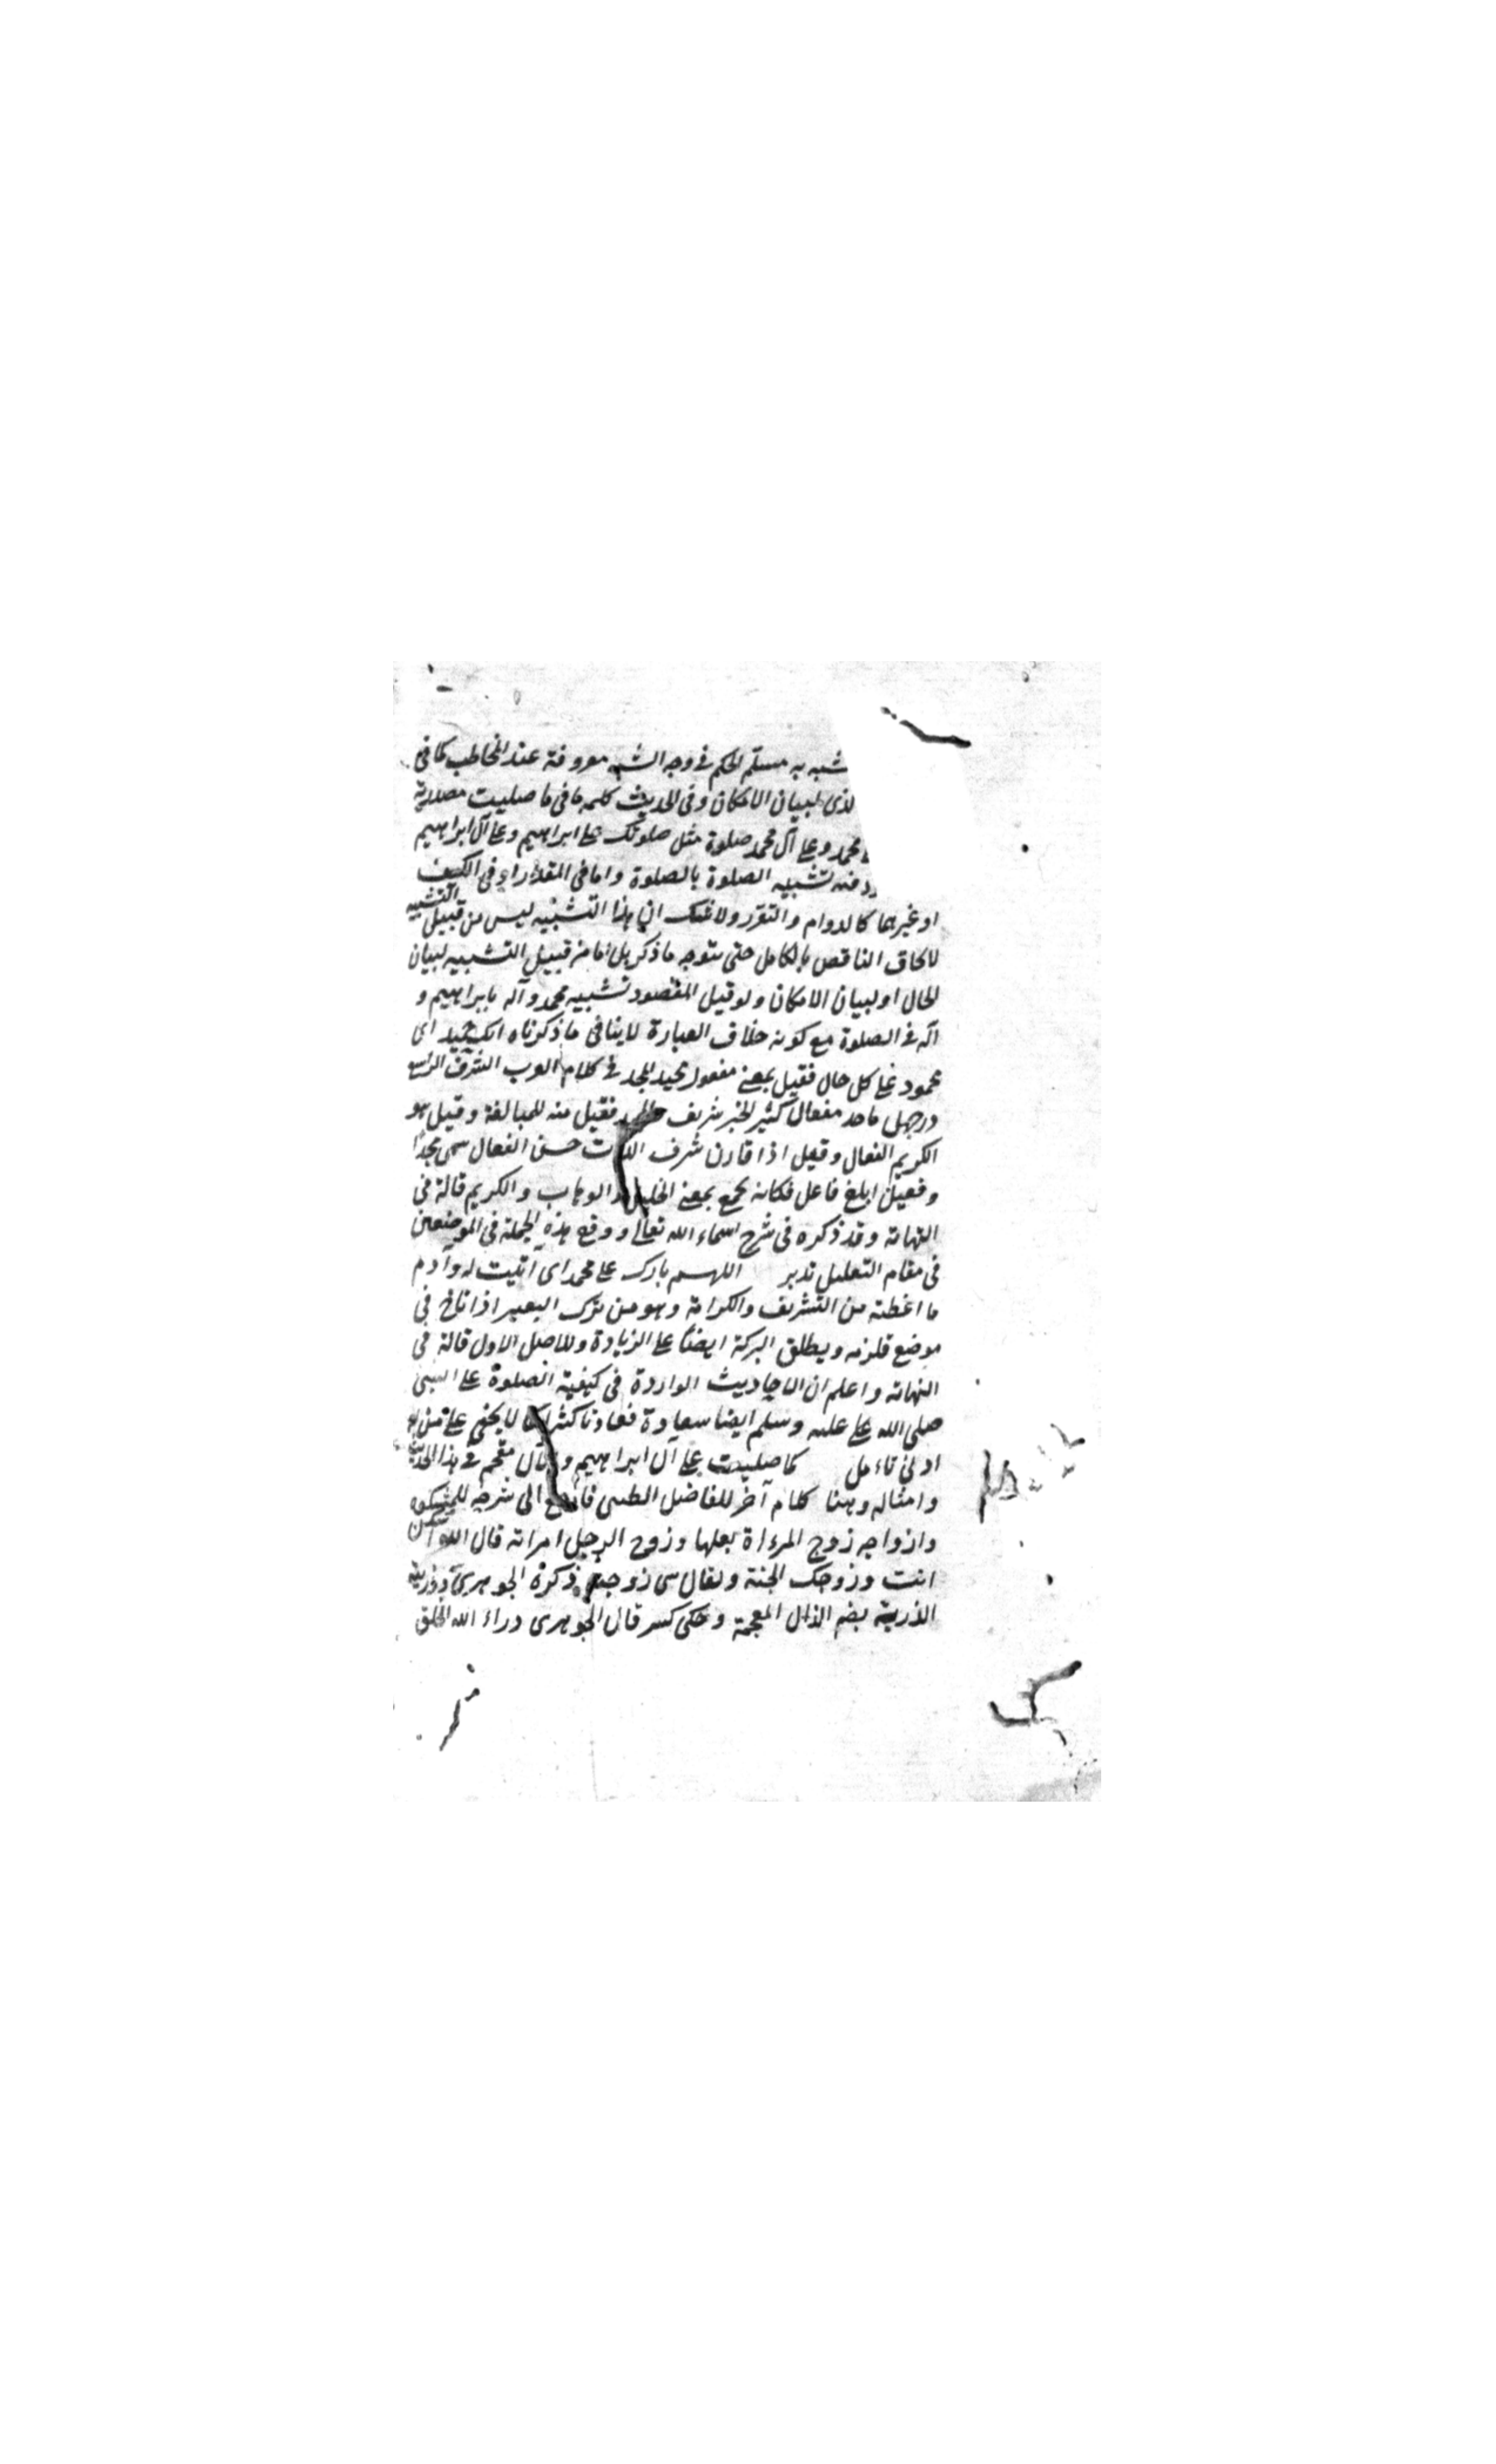 شبه به مسلّم الحكم فى وجه الشبه معروفة عند المخاطب كما فى
لذى لبيان الامكان وفى الحديث كلمه ما فى ما صليت مصدرية
محمد وعلى آل محمد صلوة مثل صلوتك على ابراهيم وعلى آل ابراهيم
فيه تشبيه الصلوة بالصلوة واما فى المقدار او فى الكيف
او غيرهما كالدوام والتقرر ولا شك ان هذا التشبيه ليس من قبيل التشبيه
لالحاق الناقص بالكامل حتى يتوجه ما ذكر بل اما من قبيل التشبيه لبيان
الحال او لبيان الامكان ولو قيل المقصود تشبيه محمد وآله بابراهيم و
آله فى الصلوة مع كونه خلاف العبارة لا ينافى ما ذكرناه انك حميد اى
محمود على كل حال فقيل بمعنى مفعول مجيد المجد فى كلام العرب الشرف الواسع
ورجل ماجد مفعال كثير الخير شريف فقيل منه للمبالغة وقيل هو
الكريم الفعال وقيل اذا قارن شرف الذات حسن الفعال سمى مجدًا
وفعيل ابلغ فاعل فكانه يجمع بمعنى الجليل والوهاب والكريم قاله فى
النهاية وقد ذكره فى شرح اسماء الله تعالى ووقع هذه الجملة فى الموضعين
فى مقام التعليل تدبر اللهم بارك على محمد اى اثبت له وآدم
ما اعطيته من التشريف والكرامة وهو من برك البعير اذا ناخ فى
موضع فلزمه ويطلق البركة ايضًا على الزيادة والاصل الاول قاله فى
النهاية واعلم ان الاحاديث الواردة فى كيفية الصلوة على النبى
صلى الله على عليه وسلم ايضا لا يخفى على من له
ادنى تامل كما صليت على آل ابراهيم والآل مقحم فى هذا الحديث
وامثاله وهنا كلام آخر للفاضل الطيبى فارجع الى شرحه للمشكوة
وازواجه زوج المرءاة بعلها وزوج الرجل امراته قال الله اسكن
انت وزوجك الجنة ويقال هى زوجته ذكره الجوهرى وذريته
الذرية بضم الذال المعجمة وحكى كسر قال الجوهرى ذراء الله الخلق